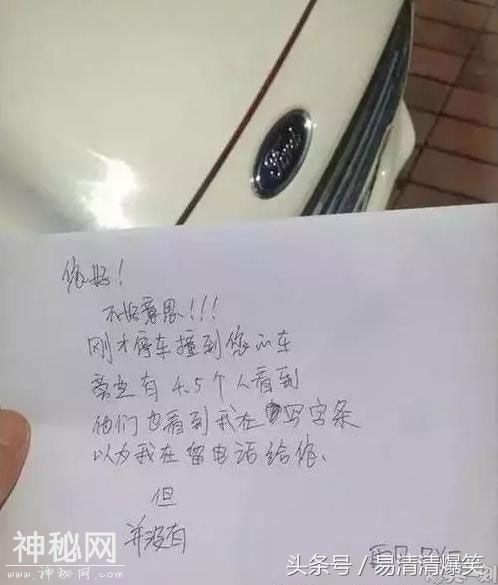 Ford
您好！
不好意思！！！
刚才停车撞到您的车
旁边有4.5个人看到
他们也看到我在写字条
以为我在留电话给您、
但
并没有
神秘网
WWW.神秘网.COM
头条号／易清清爆笑